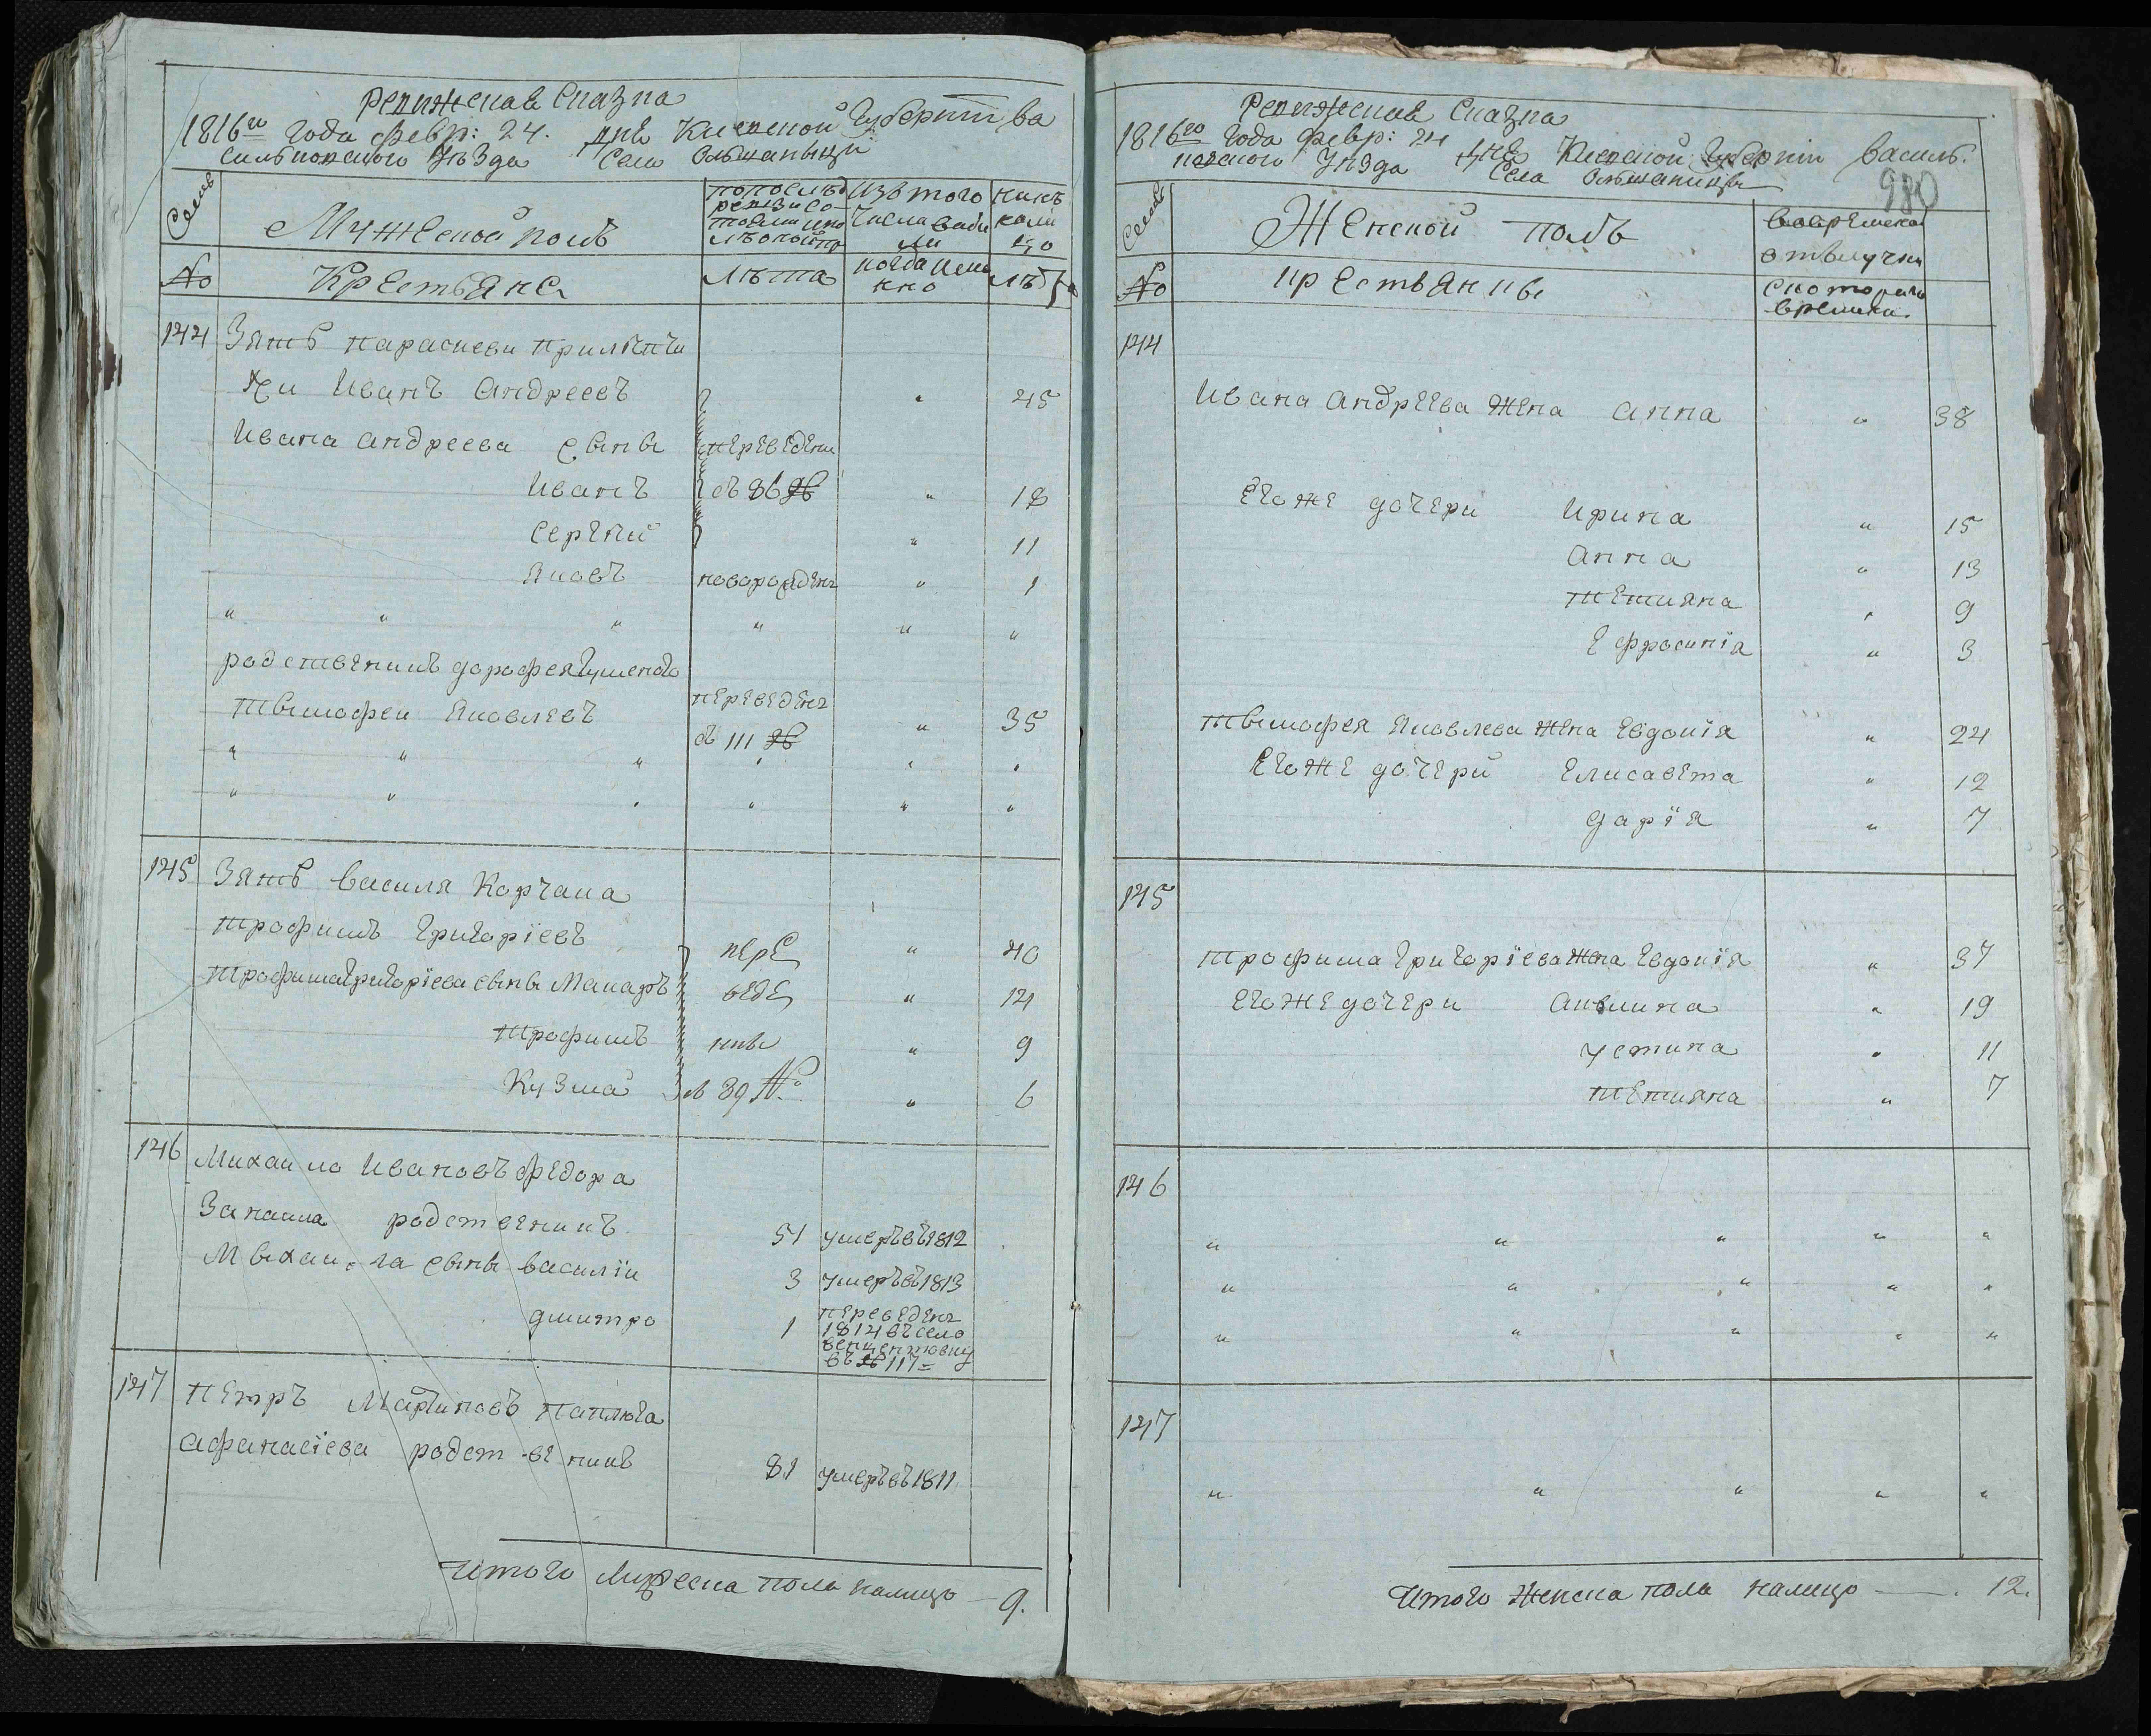 Ревижская Сказка
1816го Года февр: 24. Дня Киевской Губернiи Ва
сильковского уѣзда Села Ольшаныци
Семьи
Мужеской полъ
по последней ревизiи состояли и по
Изъ того числа выбыли
нынѣ на лицо
No
Крестьяне
Лѣта
когда именно
лѣта
144 Зять Параскеви
ки Иванъ Андреевъ " 45
Ивана Андреева сыны переведени
Иванъ съ 86 № " 18
Сергѣй " 11
Яковъ новорожденъ " 1
" " " " " "
родственикъ дорофея
тымофей Яковлевъ переведенъ " 35
съ 111 №
" " " " " "
" " " " " "
145 Зять василя Корчана
трофимъ григорiевъ пере " 40
трофима григорiева сыны Макаръ веде " 14
трофимъ нны " 9
Кузма съ 89 № " 6
146 Михайло Ивановъ федора
родственикъ 51 умеръ въ 1812
Михайла сыны василiй 3 умеръ въ 1813
дмитро 1 переведенъ
1814 въ село
венцентовку
въ № 117
147 петръ Мартиновъ
афанасiева родственикъ 81 умеръ въ 1811
Итого Мужеска пола налицо — 9.
Ревижская Сказка
1816го Года февр: 24 Дня Киевской Губернiи Василь-
ковского Уѣзда Села Ольшаници
980
Семьи
Женской полъ
во временной отлучки
No
крестьянкы
с которого времени
144
Ивана андреева жена анна " 38
Его же дочери Ирина " 15
анна " 13
тетияна " 9
Ефросинiя " 3
тымофея Яковлева жена Евдокiя " 24
Его же дочери Елисавета " 12
дарiя " 7
145
трофима григорiева жена Евдокiя " 37
Его же дочери акилина " 19
устина " 11
тетияна " 7
146
" " " " "
" " " " "
" " " " "
147
" " " " "
Итого Женска пола налицо — 12.